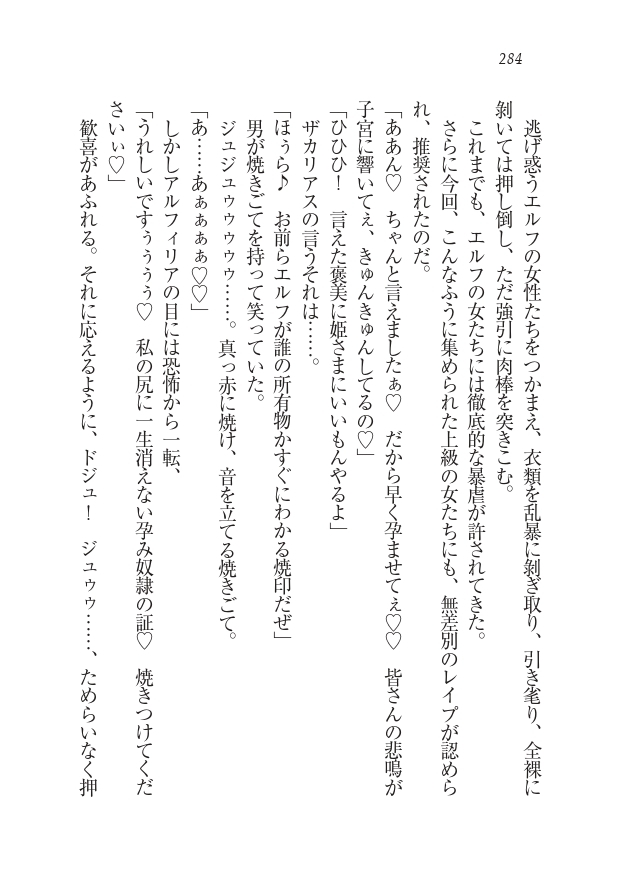 284
逃げ惑うエルフの女性たちをつかまえ、衣類を乱暴に剥ぎ取り、引き毟り、全裸に
剥いては押し倒し、ただ強引に肉棒を突きこむ。
これまでも、エルフの女たちには徹底的な暴虐が許されてきた。
さらに今回、こんなふうに集められた上級の女たちにも、無差別のレイプが認めら
れ、推奨されたのだ。
「ああん♡　ちゃんと言えましたぁ♡　だから早く孕ませてぇ♡♡　皆さんの悲鳴が
子宮に響いてぇ、きゅんきゅんしてるの♡」
「ひひひ！　言えた褒美に姫さまにいいもんやるよ」
ザカリアスの言うそれは……。
「ほぅら♪　お前らエルフが誰の所有物かすぐにわかる焼印だぜ」
男が焼きごてを持って笑っていた。
ジュジュゥゥゥゥゥ……。真っ赤に焼け、音を立てる焼きごて。
「あ……あぁぁぁぁ♡♡」
しかしアルフィリアの目には恐怖から一転、
「うれしいですぅぅぅぅ♡　私の尻に一生消えない孕み奴隷の証♡　焼きつけてくだ
さいぃ♡」
歓喜があふれる。それに応えるように、ドジュ！　ジュゥゥ……、ためらいなく押